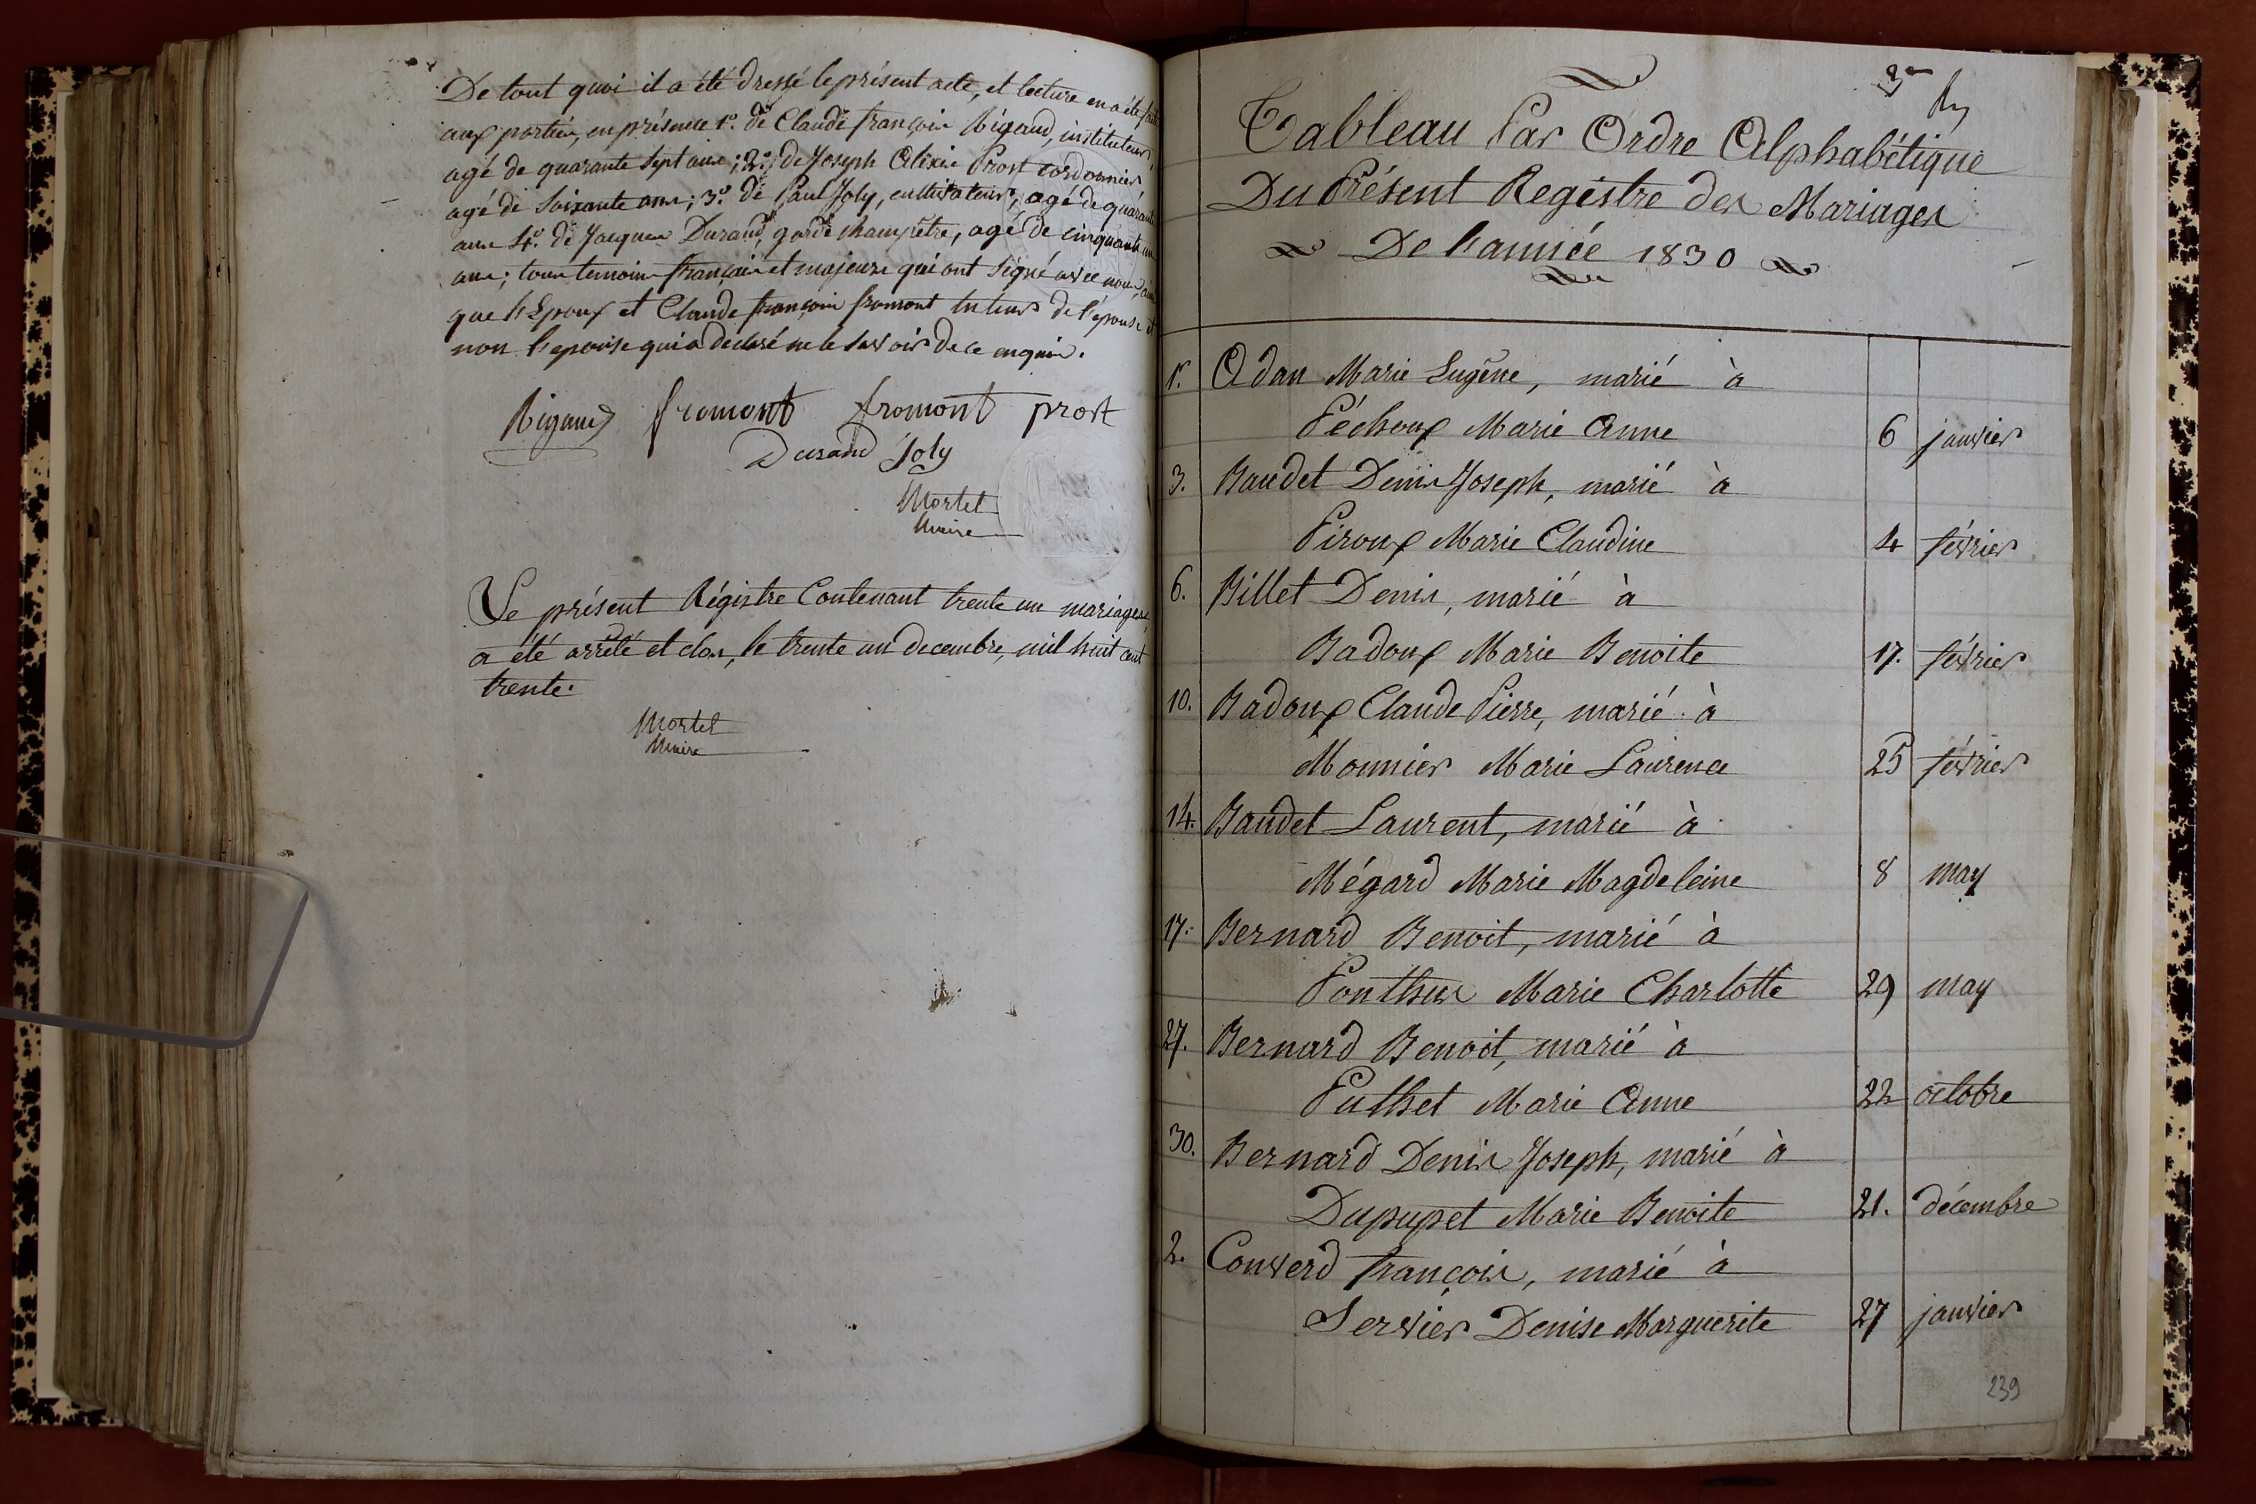 De tout quoi il a été dressé le présent acte, et lecture en a été faite
aux parties, en présence 1º. de Claude françois Rigaud, instituteur,
agé de quarante sept ans; 2º. de Joseph Alixis Prost cordonnier,
agé de soixante ans; 3º. de Paul Joly, cultivateur, agé de quarante
ans 4º. de Jacques Durand, garde champêtre, agé de cinquante un
ans; tous temoins français et majeurs qui ont signé avec nous, ainsi
que l'Epoux et Claude françois fromont tuteur de l'épouse et
non l'epouse qui a declaré ne le savoir de ce enquis.
Rigaud fromont fromont prost
Durand Joly
Mortel
Maire
Le présent Régistre Contenant trente un mariages,
a été arrêté et clos, le trente un decembre, mil huit cent
trente.
Mortel
Maire
Tableau Par Ordre Alphabétique
Du Présent Registre des Mariages
De l'année 1830
1. Adan Marie Eugêne, marié à
Péchoux Marie Anne 6 janvier
3. Baudet Denis Joseph, marié à
Piroux Marie Claudine 4 février
6. Billet Denis, marié à
Badoux Marie Benoite 17. février
10. Badoux Claude Pierre, marié à
Monnier Marie Laurence 25 février
14. Baudet Laurent, marié à
Mégard Marie Magdeleine 8 may
17. Bernard Benoit, marié à
Ponthus Marie Charlotte 29 may
27. Bernard Benoit, marié à
Puthet Marie Anne 22 octobre
30. Bernard Denis Joseph, marié à
Dupupet Marie Benoite 21. décembre
2. Converd françois, marié à
Servier Denise Marguerite 27 janvier
239